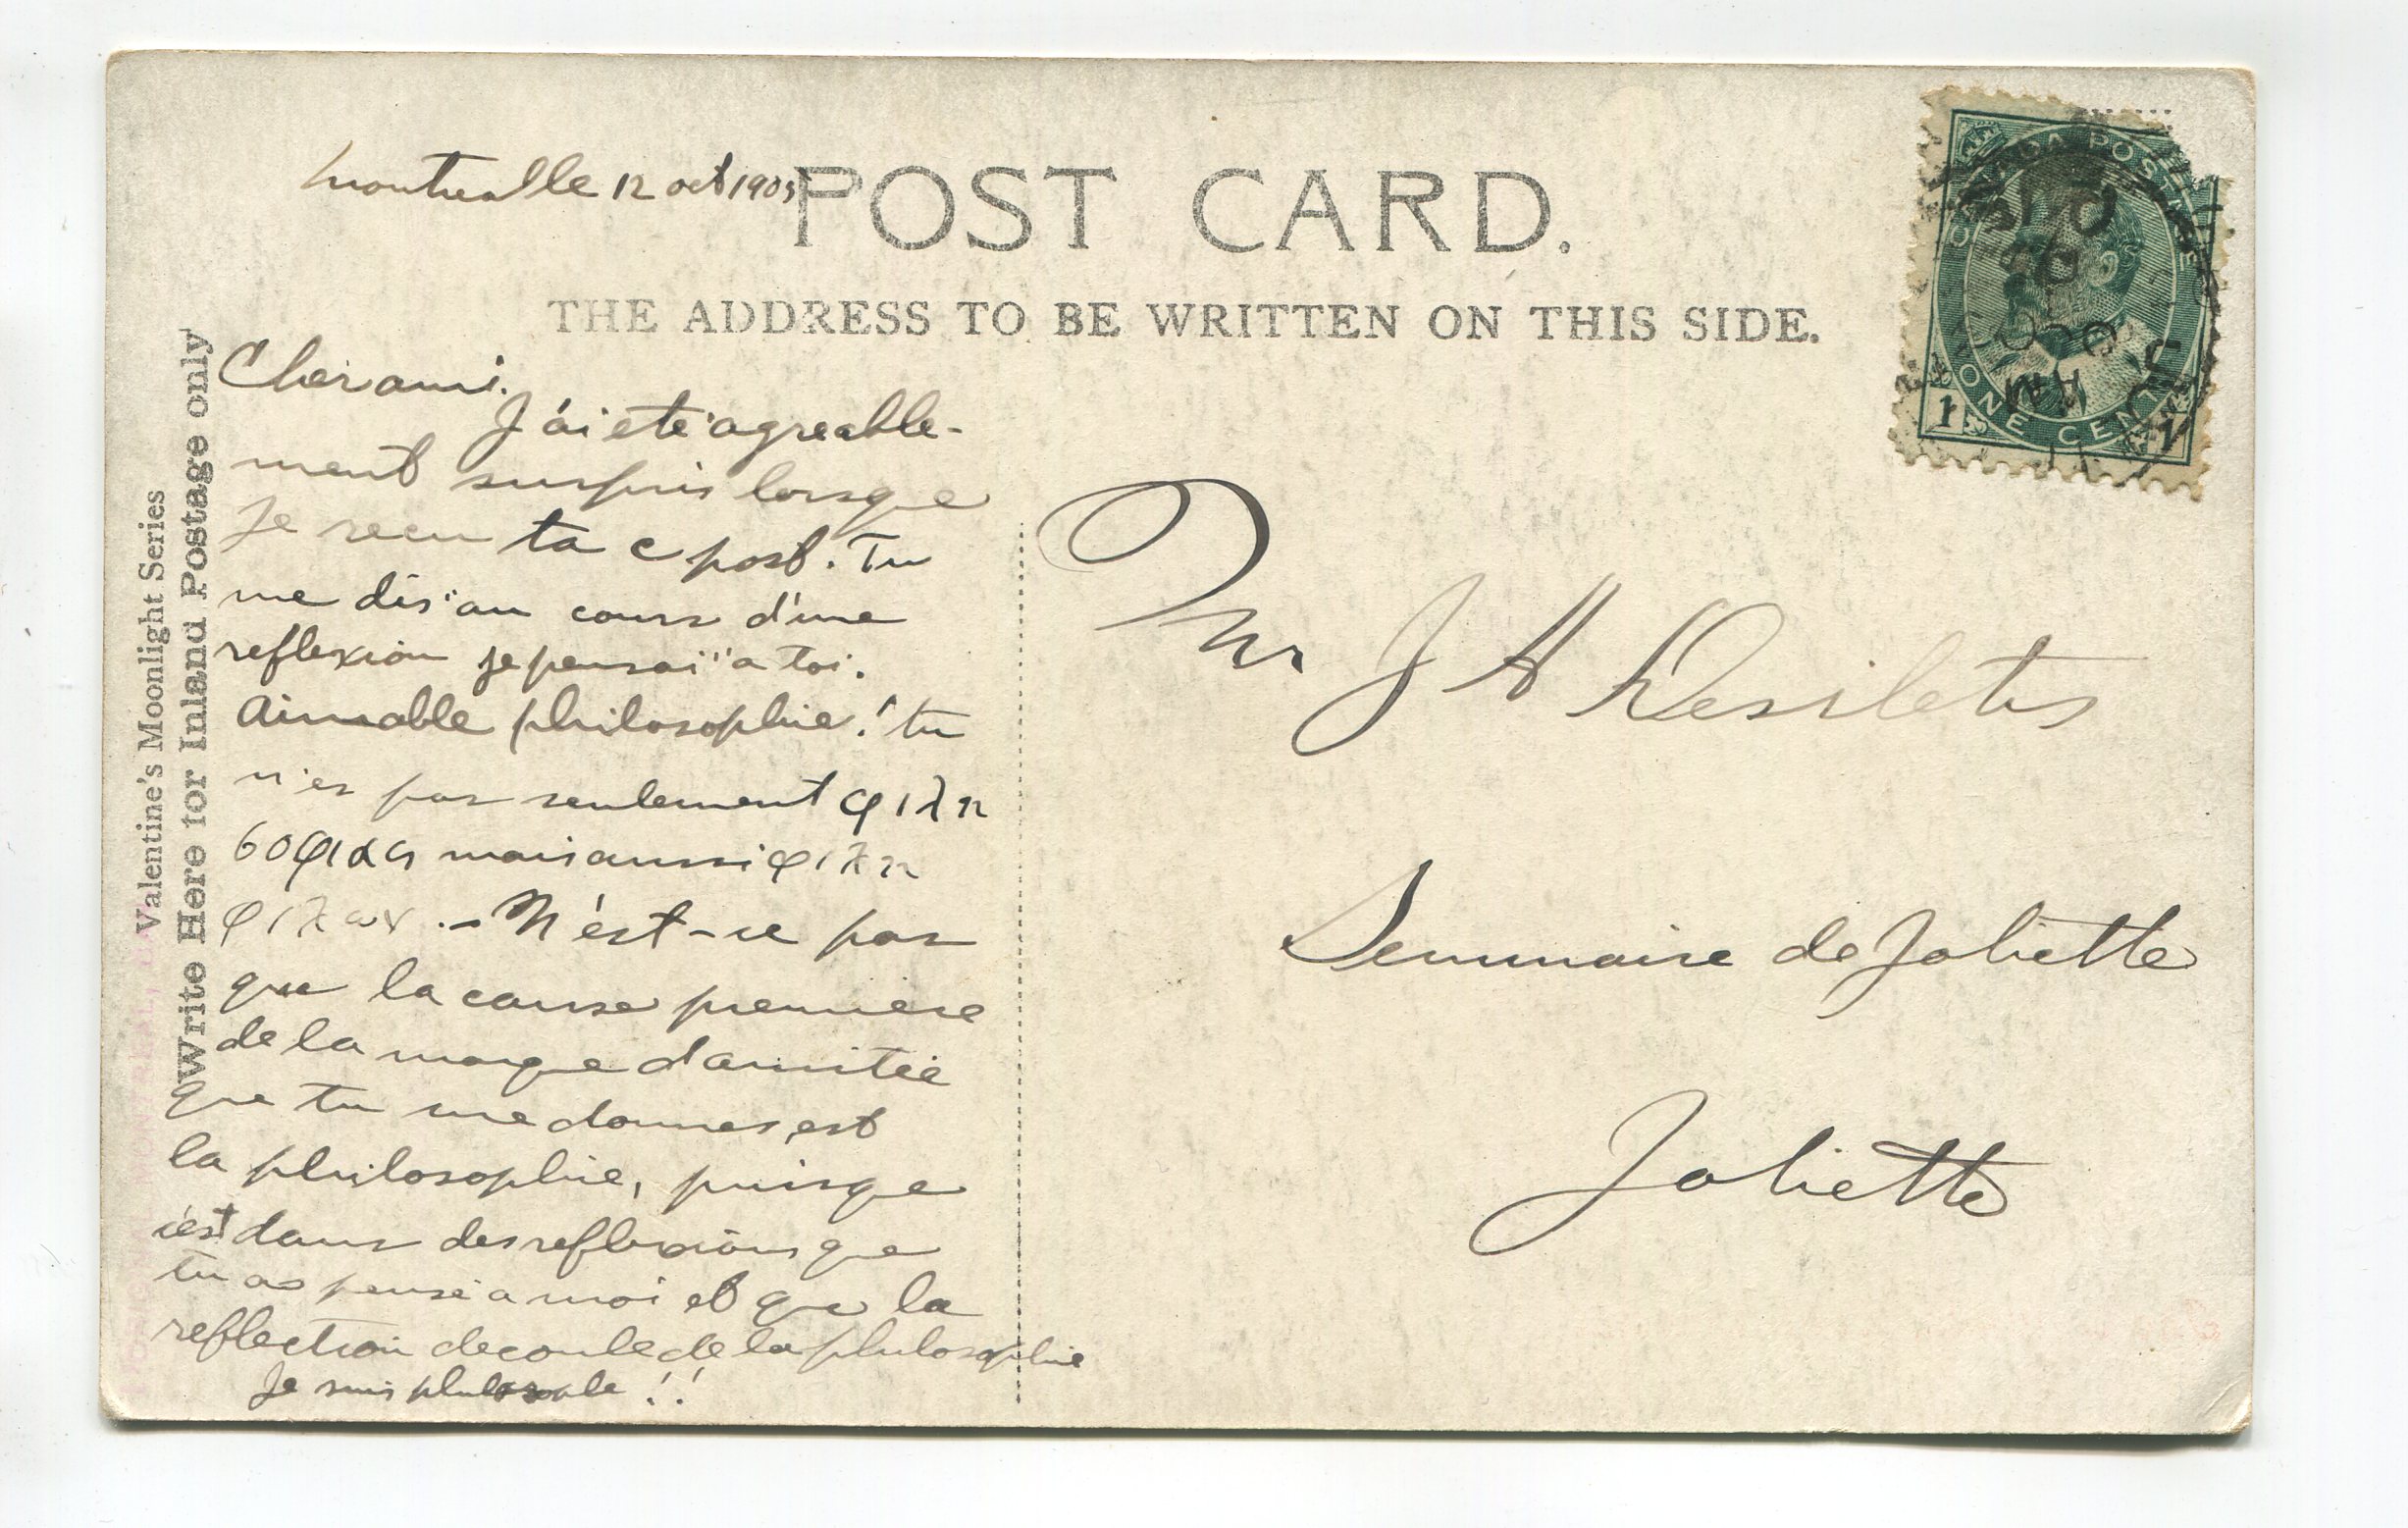 Montrealle 12 oct 1905
POST CARD.
THE ADDRESS TO BE WRITTEN ON THIS SIDE.
Valentine's Moonlight Series
Write Here for Inland Postage only
Cher ami.
J'ai eté agreable-
ment surpris lorsque
je recu ta c post. Tu
me dis au cours d'une
reflexion je pensai a toi.
Aimable philosophie! tu
n'es pas seulement φιλη
σοφιας mais aussi φιλη
φιλων. - N'est-ce pas
que la cause premiere
de la marque d'amitié
que tu me donnes, est
la philosophie, puisque
c'est dans des reflexions que
tu as pensé a moi et que la
reflection decoule de la philosophie
Je suis philosophe!!
CANADA POSTAGE
ONE CENT
1 1
OC
AM
Mr J H Desilets
Seminaire de Joliette
Joliette